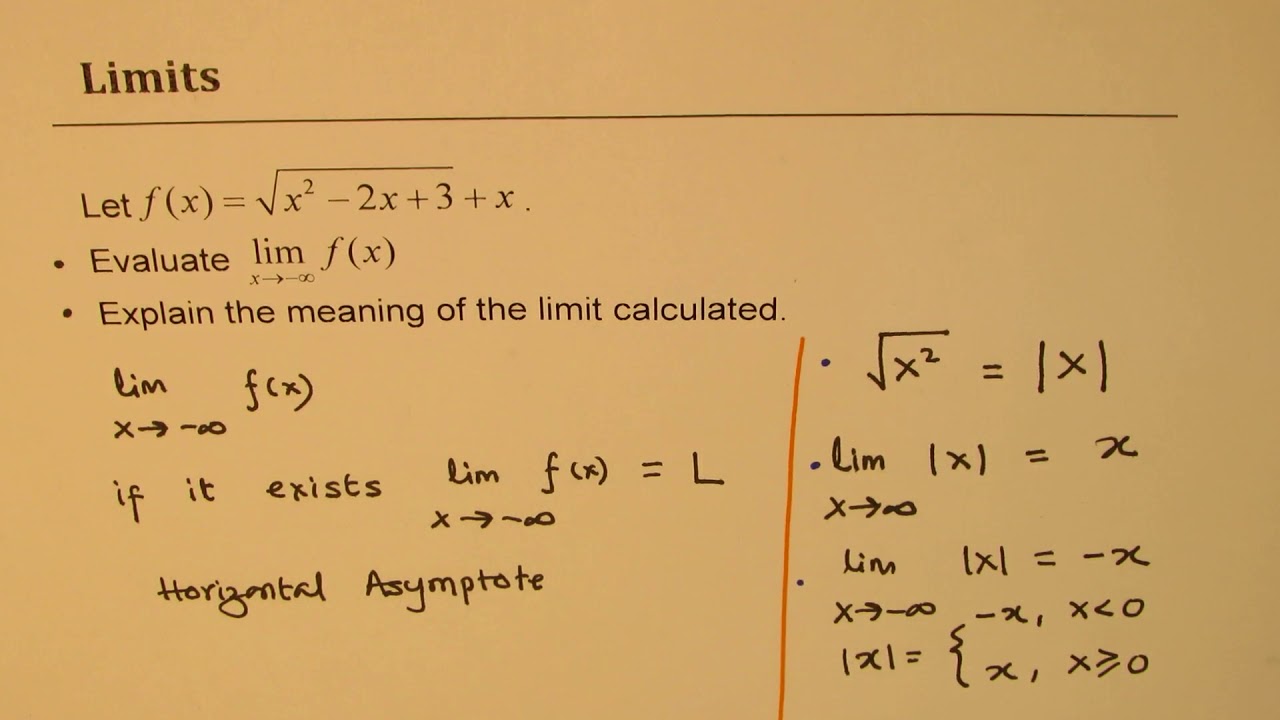 Limits
Let f(x) = √(x² − 2x + 3) + x .
• Evaluate lim f(x)
x→−∞
• Explain the meaning of the limit calculated.
lim f(x)
x → −∞
if it exists lim f(x) = L
x → −∞
Horizontal Asymptote
• √x² = |x|
• lim |x| = x
x→∞
• lim |x| = −x
x→−∞
|x| = { −x, x<0
x, x⩾0